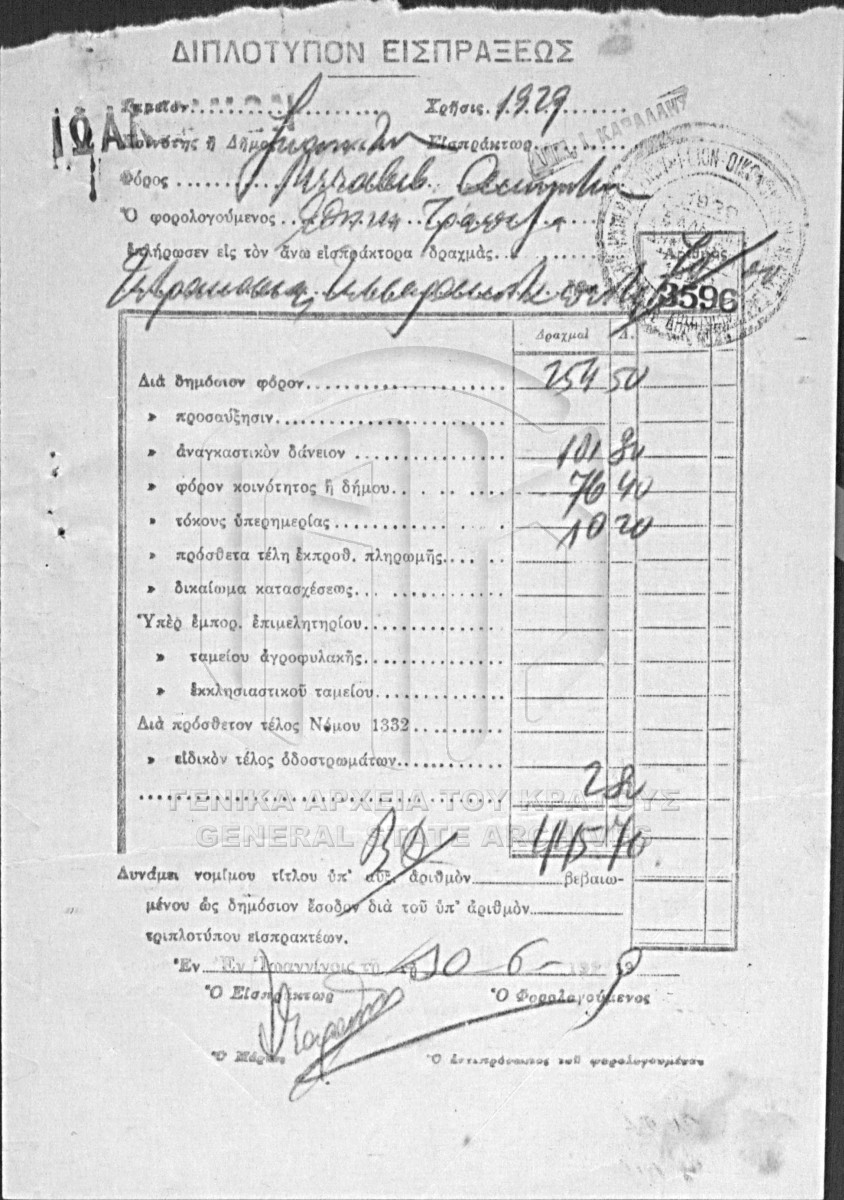 ΔΙΠΛΟΤΥΠΟΝ ΕΙΣΠΡΑΞΕΩΣ
Ταμεῖον Χρῆσις 1929
Κοινότης ἢ Δῆμος Εἰσπράκτωρ
Φόρος
Ὁ φορολογούμενος Ἐθνικὴ Τράπεζα
ἐπλήρωσεν εἰς τὸν ἄνω εἰσπράκτορα δραχμὰς
Ἀριθμὸς
3596
Δραχμαὶ Λ.
Διὰ δημόσιον φόρον 254 50
» προσαύξησιν
» ἀναγκαστικὸν δάνειον 101 80
» φόρον κοινότητος ἢ δήμου 76 40
» τόκους ὑπερημερίας 10 20
» πρόσθετα τέλη ἐκπροθ. πληρωμῆς
» δικαίωμα κατασχέσεως
Ὑπὲρ ἐμπορ. ἐπιμελητηρίου
» ταμείου ἀγροφυλακῆς
» ἐκκλησιαστικοῦ ταμείου
Διὰ πρόσθετον τέλος Νόμου 1332
» εἰδικὸν τέλος ὁδοστρωμάτων
2 80
ΓΕΝΙΚΑ ΑΡΧΕΙΑ ΤΟΥ ΚΡΑΤΟΥΣ
GENERAL STATE ARCHIVES
445 70
Δυνάμει νομίμου τίτλου ὑπ' αὐξ. ἀριθμὸν βεβαιω-
μένου ὡς δημόσιον ἔσοδον διὰ τοῦ ὑπ' ἀριθμὸν
τριπλοτύπου εἰσπρακτέων.
Ἐν Ἐν Ἰωαννίνοις τῇ 10 6
Ὁ Εἰσπράκτωρ Ὁ Φορολογούμενος
Ὁ Μάρτυς Ὁ ἀντιπρόσωπος τοῦ φορολογουμένου